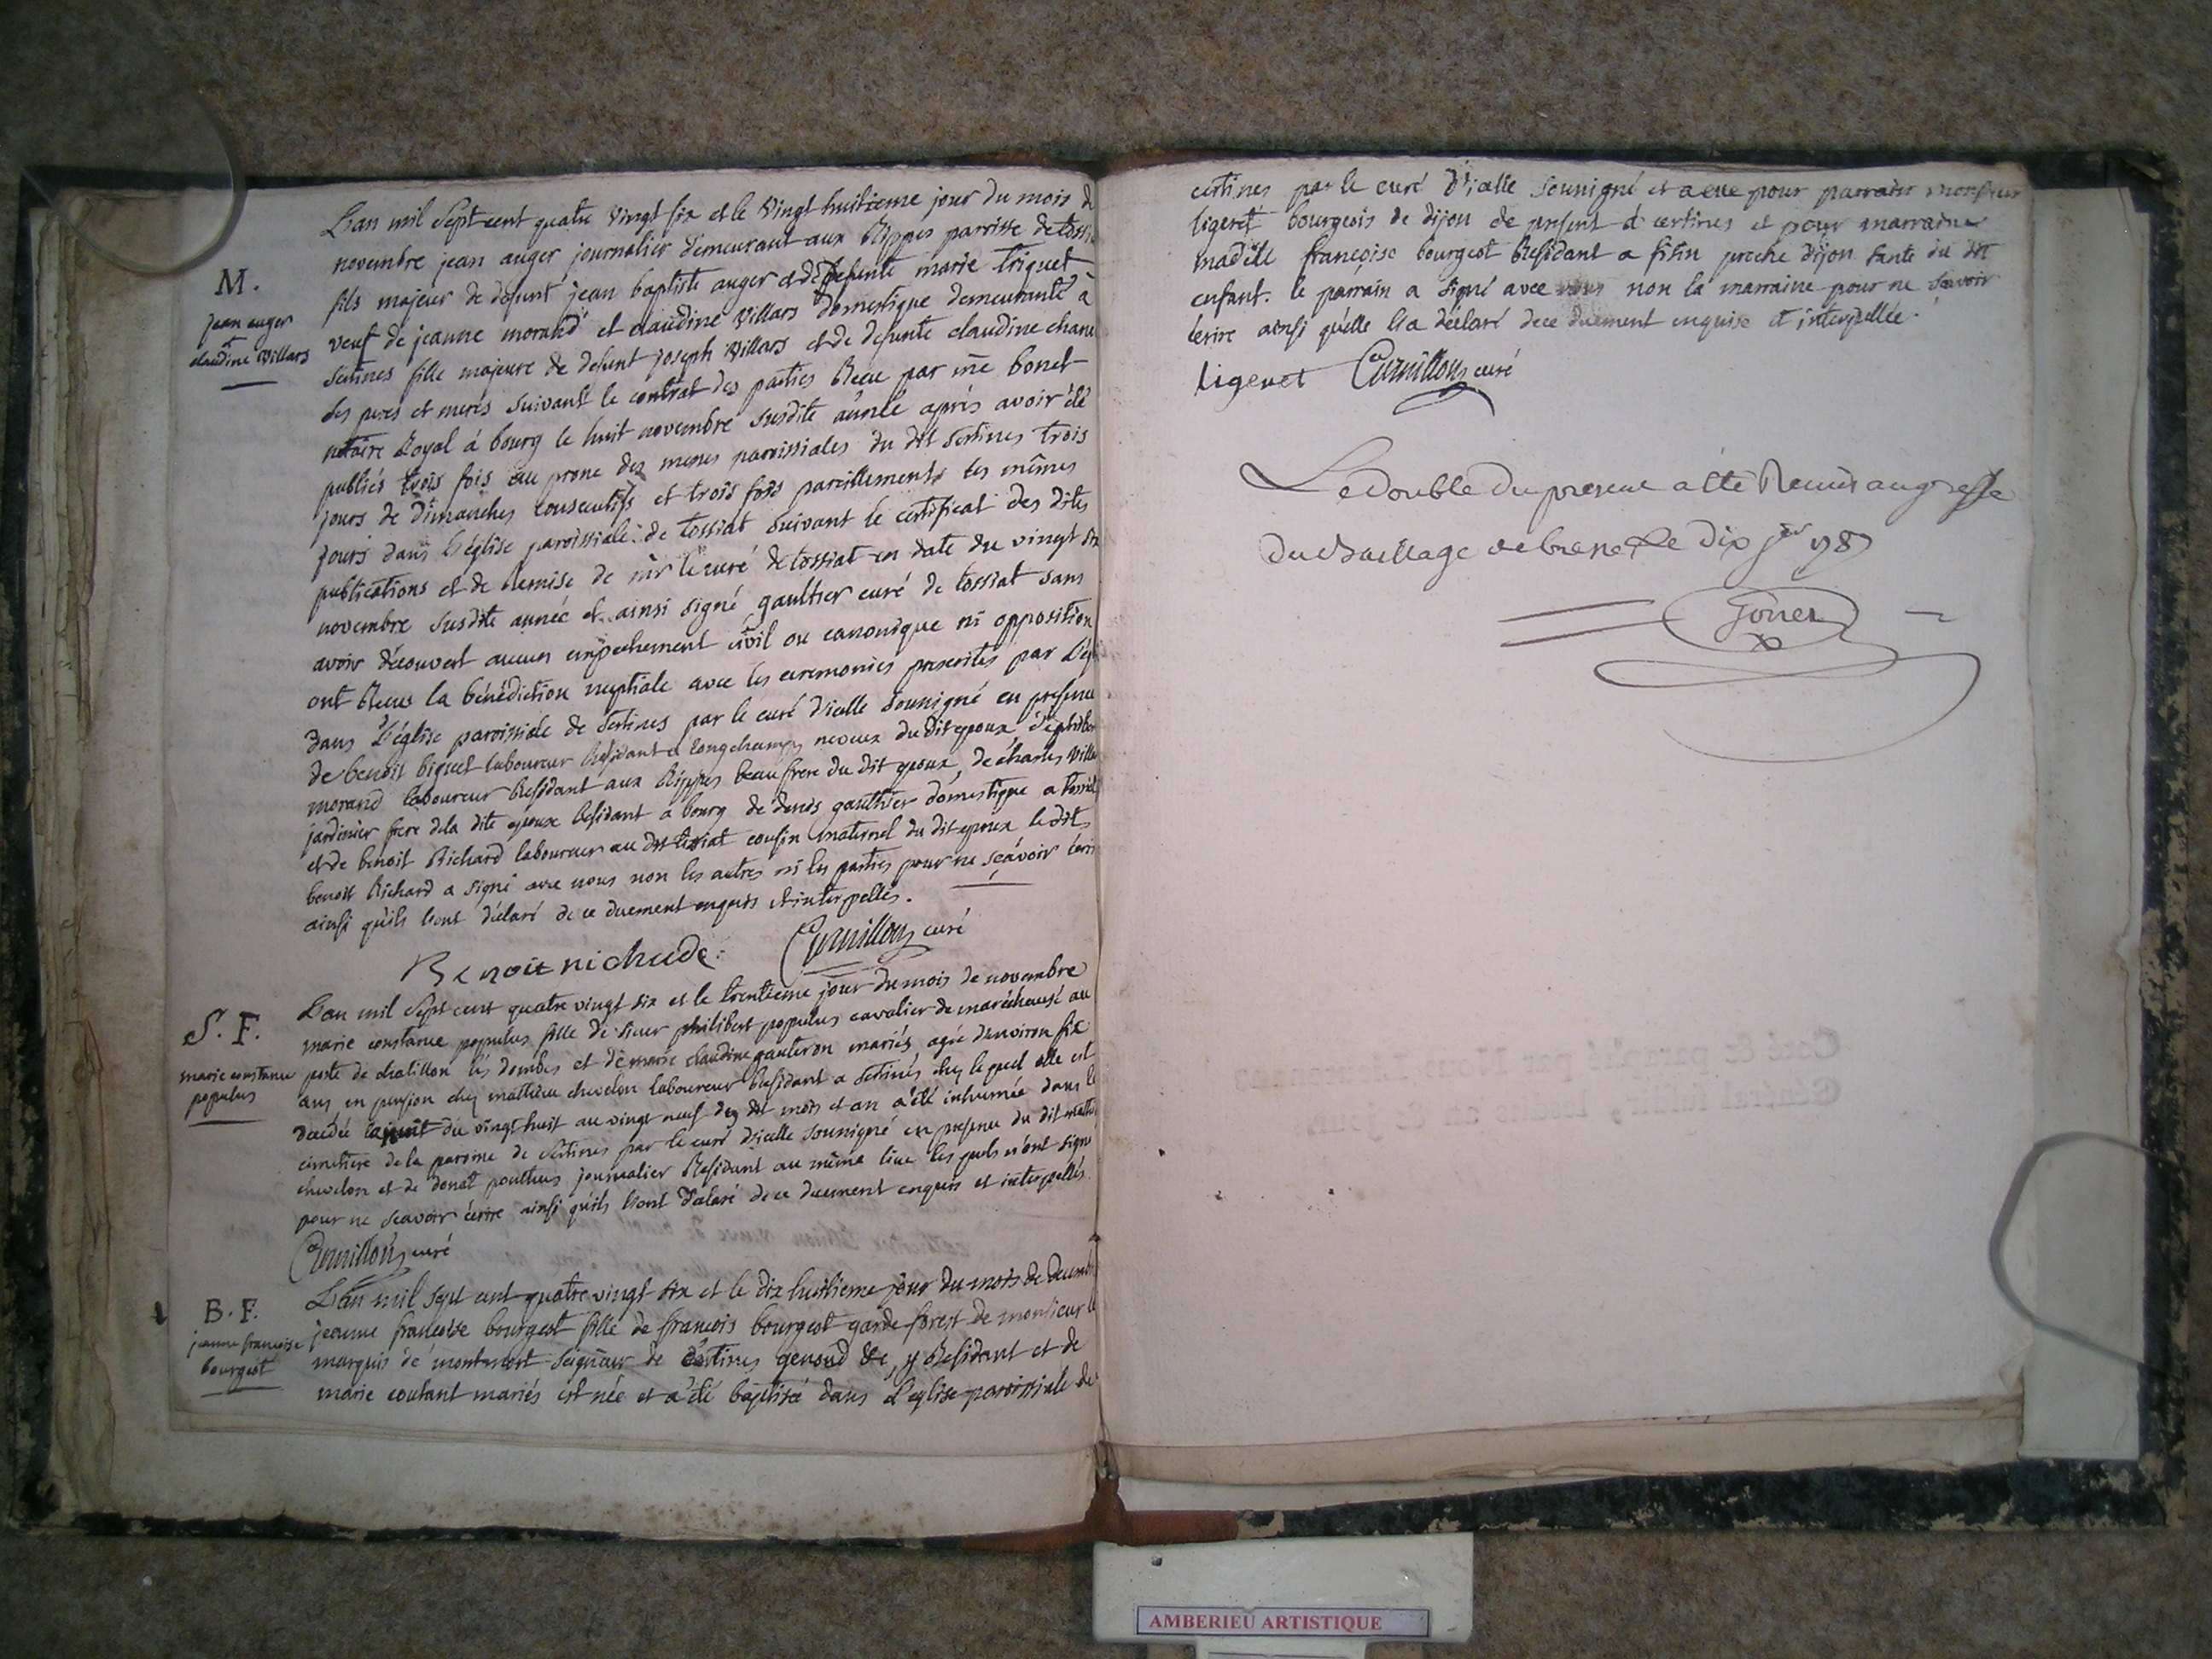 M.
jean auger
et
claudine Villars
L'an mil sept cent quatre vingt six et le vingt huitieme jour du mois de
novembre jean auger journalier demeurant aux Rippes parrisse de tossia
fils majeur de defunt jean baptiste auger et de defunte marie triquet
veuf de jeanne morand et claudine Villars domestique demeurante à
sertines fille majeure de defunt joseph Villars et de defunte claudine chane
ses peres et meres suivant le contrat des parties Recu par me bonet
notaire Royal à bourg le huit novembre susdite année après avoir été
publiés trois fois au prone des messes paroissiales du dit sertines trois
jours de dimanches consecutifs et trois fois pareillements les mêmes
jours dans l'église paroissiale de tossiat suivant le certificat des dites
publications et de Remise de mr le curé de tossiat en date du vingt six
novembre susdite année et ainsi signé gaultier curé de tossiat sans
avoir découvert aucun empechement civil ou canonique ni opposition
ont Recus la bénédiction nuptiale avec les ceremonies prescrites par l'egl
dans l'église paroissiale de sertines par le curé d'icelle soussigné en presence
de benoit biquet laboureur Residant a longchamps neveux du dit epoux, de philiber
morand laboureur Residant aux Rippes beau frere du dit epoux, de charles villa
jardinier frere dela dite epouse Residant a bourg de denis gauthier domestique a tossiat
et de benoit Richard laboureur au dit tossiat cousin maternel du dit epoux le dit
benoit Richard a signé avec nous non les autres ni les parties pour ne sçavoir écri
ainsi qu'ils l'ont déclaré de ce duement enquis et interpellés.
Benoit richade: Cornillon curé
S. F.
marie constance
populus
L'an mil sept cent quatre vingt six et le trentieme jour du mois de novembre
marie constance populus fille de sieur philibert populus cavalier de maréchaussé au
poste de chatillon lés dombes et de marie claudine gauteron mariés agée d'environ six
ans en pension chez mathieu chevelon laboureur Residant a sertines chez le quel elle est
decedée la nuit du vingt huit au vingt neuf des dit mois et an a été inhumée dans le
cimetiere de la paroisse de sertines par le curé d'icelle soussigné en presence du dit mathi
chevelon et de donat pouthus journalier Residant au même lieu les quels n'ont signé
pour ne scavoir écrire ainsi qu'ils l'ont déclaré de ce duement enquis et interpellés
Cornillon curé
B. F.
jeanne françoise
bourgeot
L'an mil sept cent quatre vingt six et le dix huitieme jour du mois de decemb
jeanne françoise bourgeot fille de françois bourgeot garde forest de monsieur le
marquis de montmort seigneur de Certines genoud &c, y Residant et de
marie coutant mariés est née et a été baptisée dans l'eglise paroissiale de
certines par le curé d'icelle soussigné et a eue pour parrain monsieur
ligeret bourgeois de dijon de present à certines et pour marraine
madelle françoise bourgeot Residant a fixin proche dijon tante du dit
enfant. le parrain a signé avec nous non la marraine pour ne scavoir
écrire ainsi qu'elle l'a déclaré de ce duement enquise et interpellée.
ligeret Cornillon curé
Le double du present a été Remis au greffe
du Bailliage de bresse le dix jer 1787
AMBERIEU ARTISTIQUE